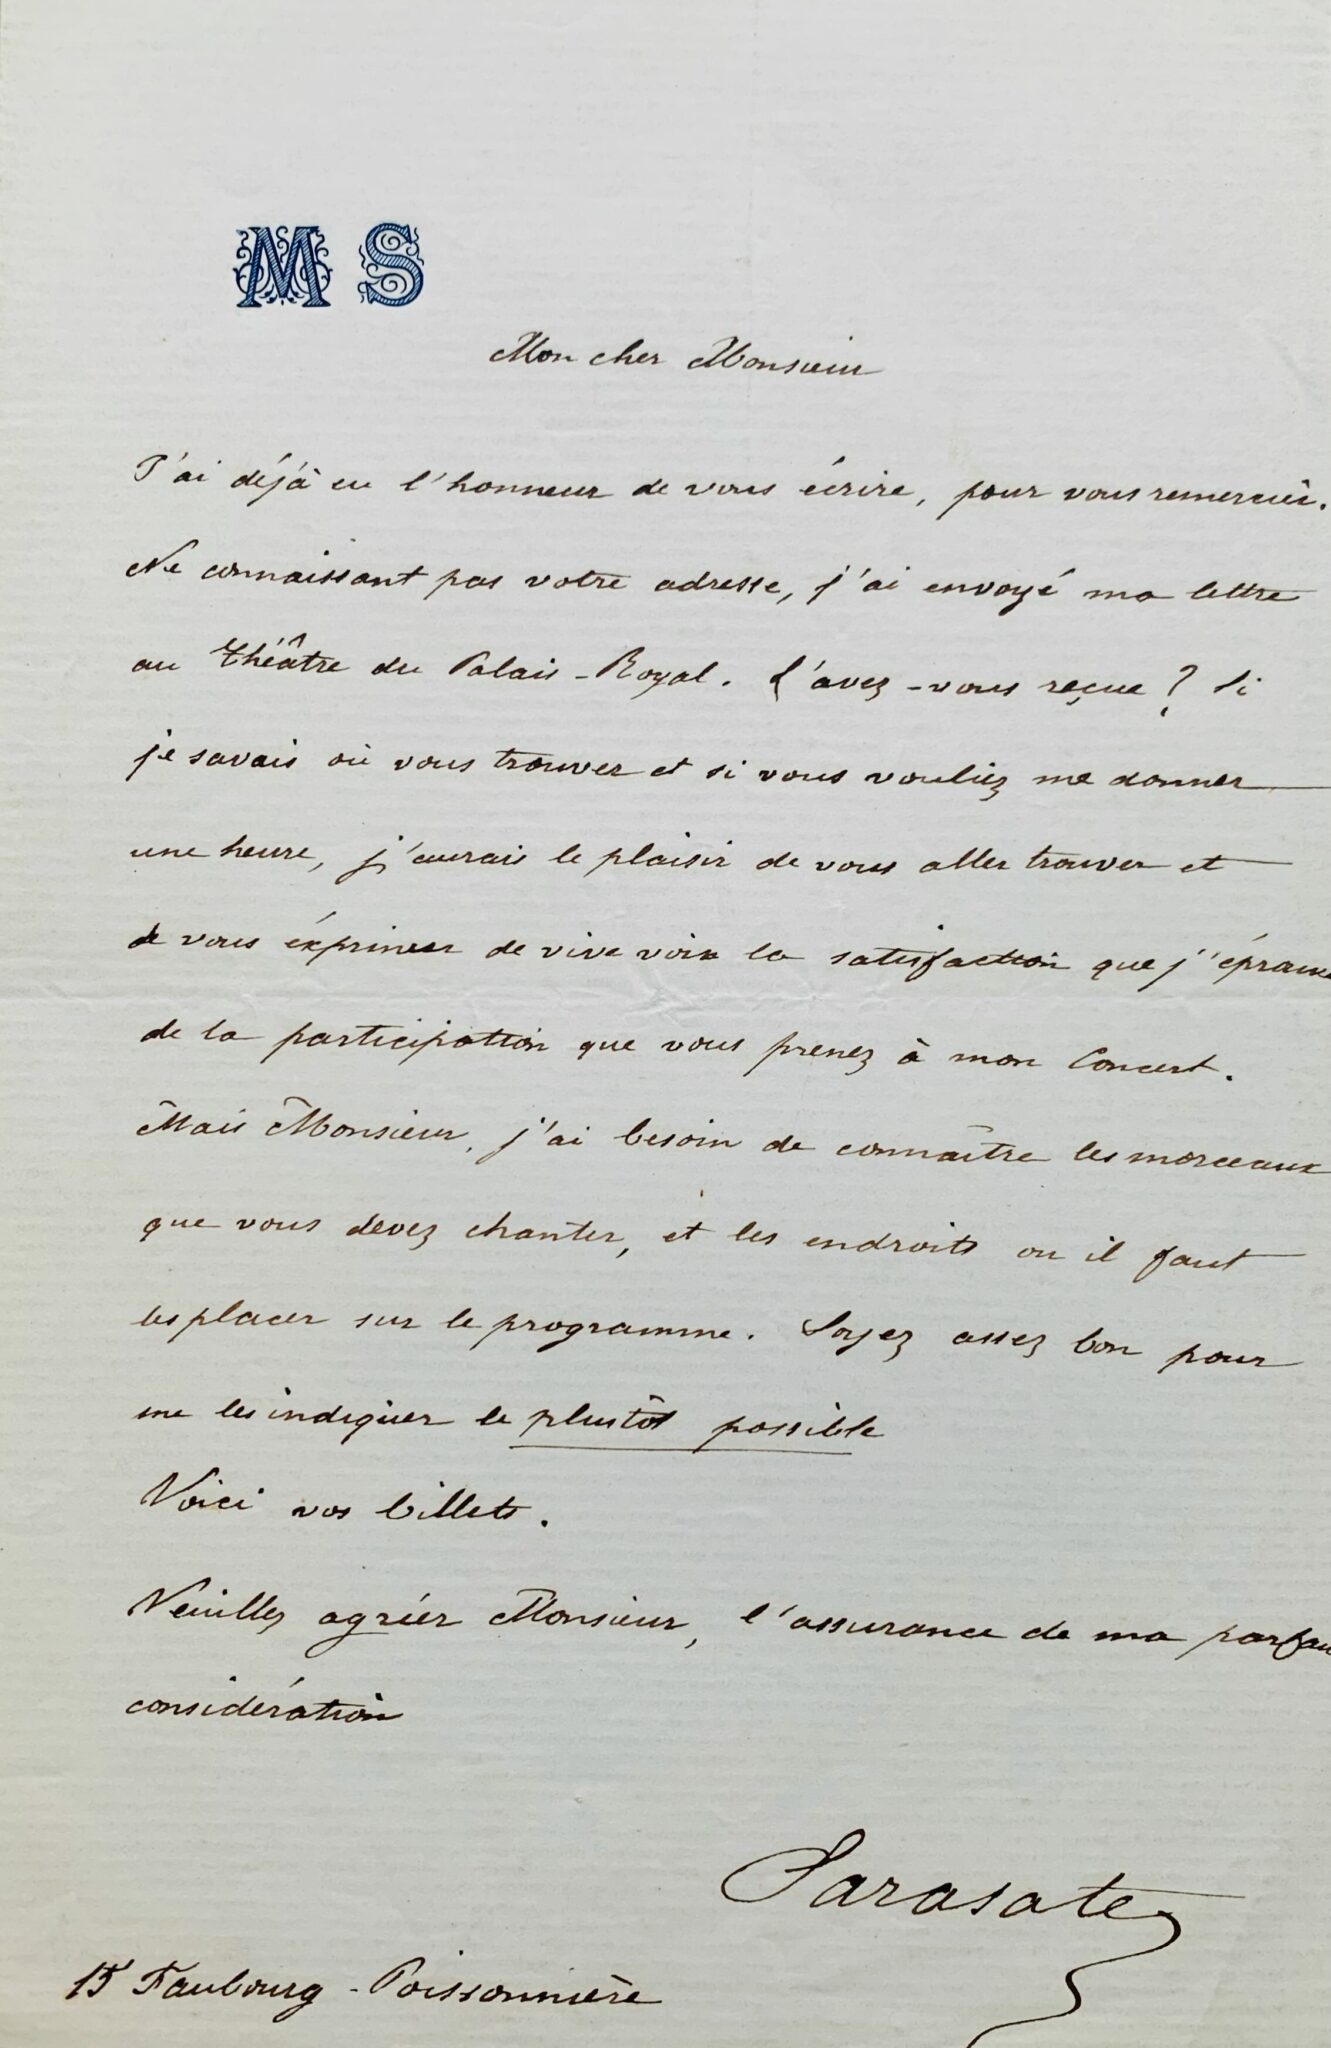 M S
Mon cher Monsieur
J'ai déjà eu l'honneur de vous écrire, pour vous remercier.
Ne connaissant pas votre adresse, j'ai envoyé ma lettre
au théâtre du Palais-Royal. L'avez-vous reçue? Si
je savais où vous trouver et si vous vouliez me donner
une heure, j'aurais le plaisir de vous aller trouver et
de vous éxprimer de vive voix la satisfaction que j'éprouve
de la participation que vous prenez à mon Concert.
Mais Monsieur, j'ai besoin de connaître les morceaux
que vous devez chanter, et les endroits ou il faut
les placer sur le programme. Soyez assez bon pour
me les indiquer le plustôt possible
Voici vos billets.
Veuillez agréer Monsieur, l'assurance de ma parfai
considération
Sarasate
15 Faubourg-Poissonnière